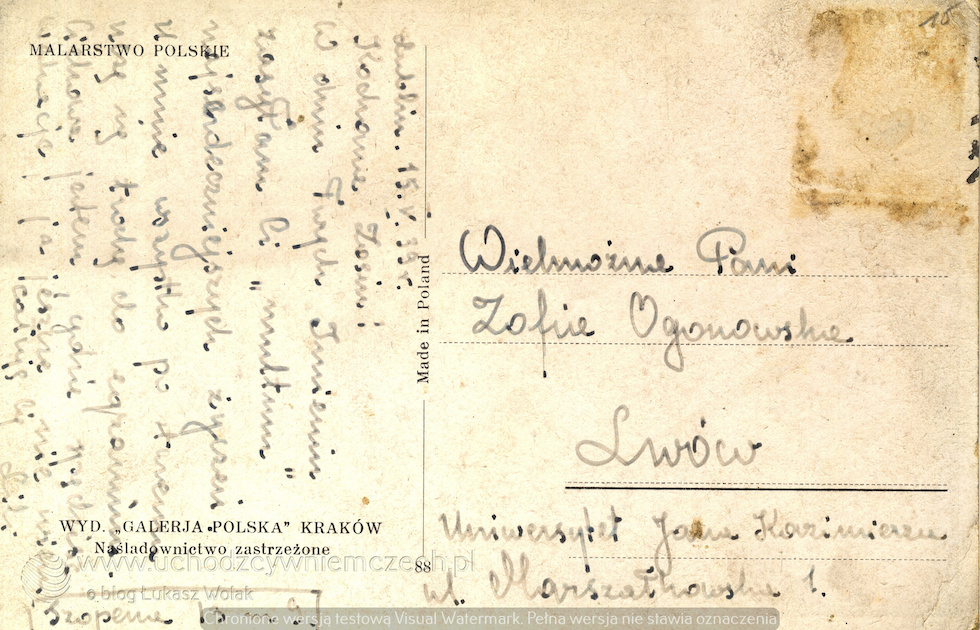 MALARSTWO POLSKIE
Lublin. 15.V.39r.
Kochana Zosiu!
W dniu Twych Imienin
zasyłam Ci "multum"
najserdeczniejszych życzeń
U mnie wszystko po
uczę się trochę do egzaminu
Ciekawa jestem gdzie
wakacje! Ja jeszcze nie
Całuję Cię
WYD. „GALERJA POLSKA” KRAKÓW
Naśladownictwo zastrzeżone
Szopena
Made in Poland
88
15
Wielmożna Pani
Zofia Ogonowska
Lwów
Uniwersytet Jana Kazimierza
ul. Marszałkowska 1.
www.uchodzcywniemczech.pl
o blog Łukasz Wolak
Chronione wersją testową Visual Watermark. Pełna wersja nie stawia oznaczenia